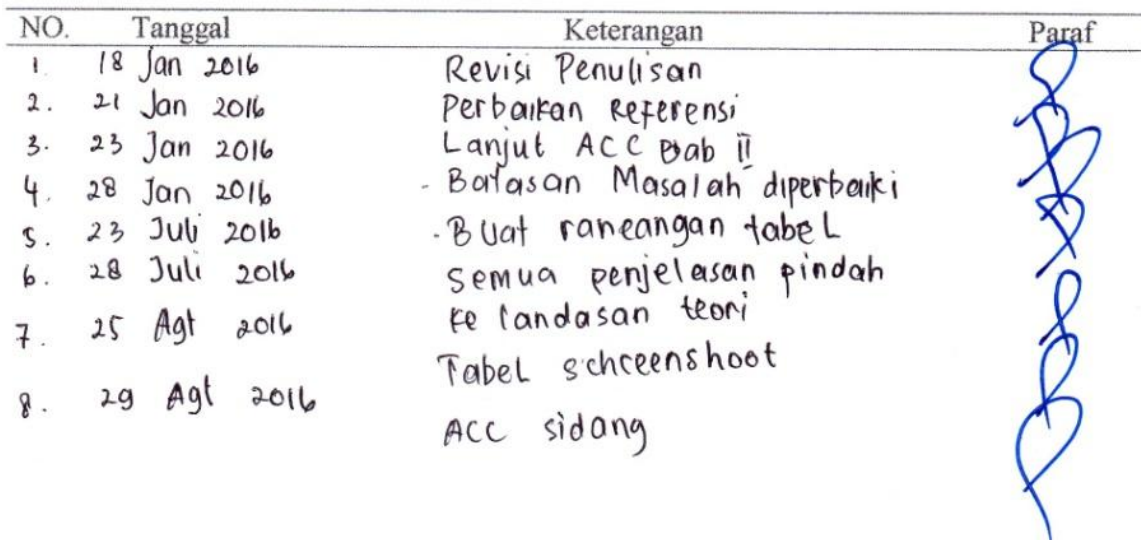 NO. Tanggal Keterangan Paraf
1. 18 Jan 2016 Revisi Penulisan
2. 21 Jan 2016 Perbaikan Referensi
3. 23 Jan 2016 Lanjut ACC Bab II
4. 28 Jan 2016 - Batasan Masalah diperbaiki
5. 23 Juli 2016 - Buat rancangan tabel
6. 28 Juli 2016 Semua penjelasan pindah
ke landasan teori
7. 25 Agt 2016
Tabel schreenshoot
8. 29 Agt 2016
ACC sidang